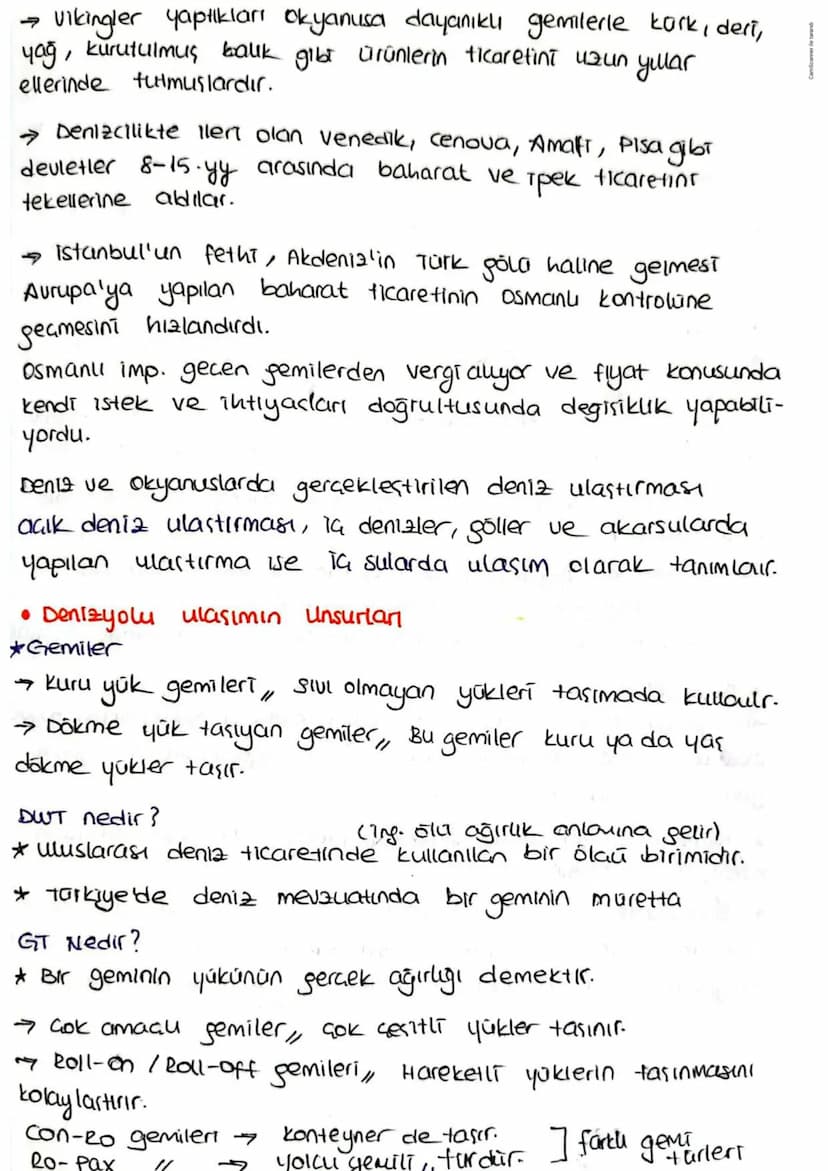 → Vikingler yaptıkları okyanusa dayanıklı gemilerle kürk, deri,
yağ, kurutulmuş balık gibi ürünlerin ticaretini uzun yıllar
ellerinde tutmuslardır.
→ Denizcilikte ileri olan Venedik, Cenova, Amalfi, Pisa gibi
devletler 8-15.yy arasında baharat ve ipek ticaretini
tekellerine aldılar.
→ istanbul'un fethi, Akdeniz'in Türk gölü haline gelmesi
Avrupa'ya yapılan baharat ticaretinin Osmanlı kontrolüne
geçmesini hızlandırdı.
Osmanlı imp. geçen gemilerden vergi alıyor ve fiyat konusunda
kendi istek ve ihtiyaçları doğrultusunda değişiklik yapabili-
yordu.
Deniz ve okyanuslarda gerçekleştirilen deniz ulaştırması
açık deniz ulaştırması, iç denizler, göller ve akarsularda
yapılan ulaştırma ise iç sularda ulaşım olarak tanımlanır.
• Denizyolu ulaşımın Unsurları
★Gemiler
→ Kuru yük gemileri,, sıvı olmayan yükleri taşımada kullanılır.
→ Dökme yük taşıyan gemiler,, Bu gemiler kuru ya da yaş
dökme yükler taşır.
DWT nedir?
(ing. ölü ağırlık anlamına gelir)
★ Uluslarası deniz ticaretinde kullanılan bir ölçü birimidir.
★ Türkiye'de deniz mevzuatında bir geminin müretta
GT Nedir?
★ Bir geminin yükünün gerçek ağırlığı demektir.
→ Çok amaçlı gemiler,, çok çeşitli yükler taşınır.
→ Roll-on / Roll-off gemileri,, Hareketli yüklerin taşınmasını
kolaylaştırır.
Con-Ro gemileri → konteyner de taşır. ] farklı gemi
Ro-Pax " → yolcu gemili,, türdür. türleri
CamScanner ile tarandı